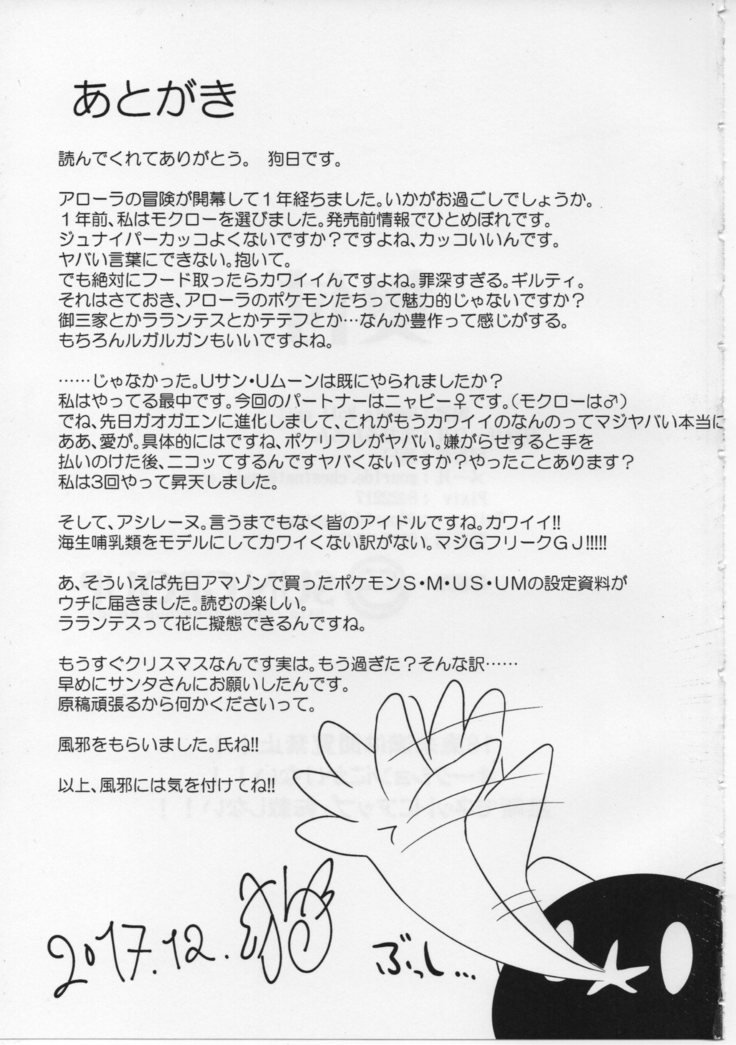 あとがき
読んでくれてありがとう。 狗日です。
アローラの冒険が開幕して1年経ちました。いかがお過ごしでしょうか。
1年前、私はモクローを選びました。発売前情報でひとめぼれです。
ジュナイパーカッコよくないですか？ですよね、カッコいいんです。
ヤバい言葉にできない。抱いて。
でも絶対にフード取ったらカワイイんですよね。罪深すぎる。ギルティ。
それはさておき、アローラのポケモンたちって魅力的じゃないですか？
御三家とかラランテスとかテテフとか…なんか豊作って感じがする。
もちろんルガルガンもいいですよね。
……じゃなかった。Uサン・Uムーンは既にやられましたか？
私はやってる最中です。今回のパートナーはニャビー♀です。（モクローは♂）
でね、先日ガオガエンに進化しまして、これがもうカワイイのなんのってマジヤバい本当に
ああ、愛が。具体的にはですね、ポケリフレがヤバい。嫌がらせすると手を
払いのけた後、ニコッてするんですヤバくないですか？やったことあります？
私は3回やって昇天しました。
そして、アシレーヌ。言うまでもなく皆のアイドルですね。カワイイ!!
海生哺乳類をモデルにしてカワイくない訳がない。マジGフリークGJ!!!!!
あ、そういえば先日アマゾンで買ったポケモンS・M・US・UMの設定資料が
ウチに届きました。読むの楽しい。
ラランテスって花に擬態できるんですね。
もうすぐクリスマスなんです実は。もう過ぎた？そんな訳……
早めにサンタさんにお願いしたんです。
原稿頑張るから何かくださいって。
風邪をもらいました。氏ね!!
以上、風邪には気を付けてね!!
2017.12.
ぶっし...